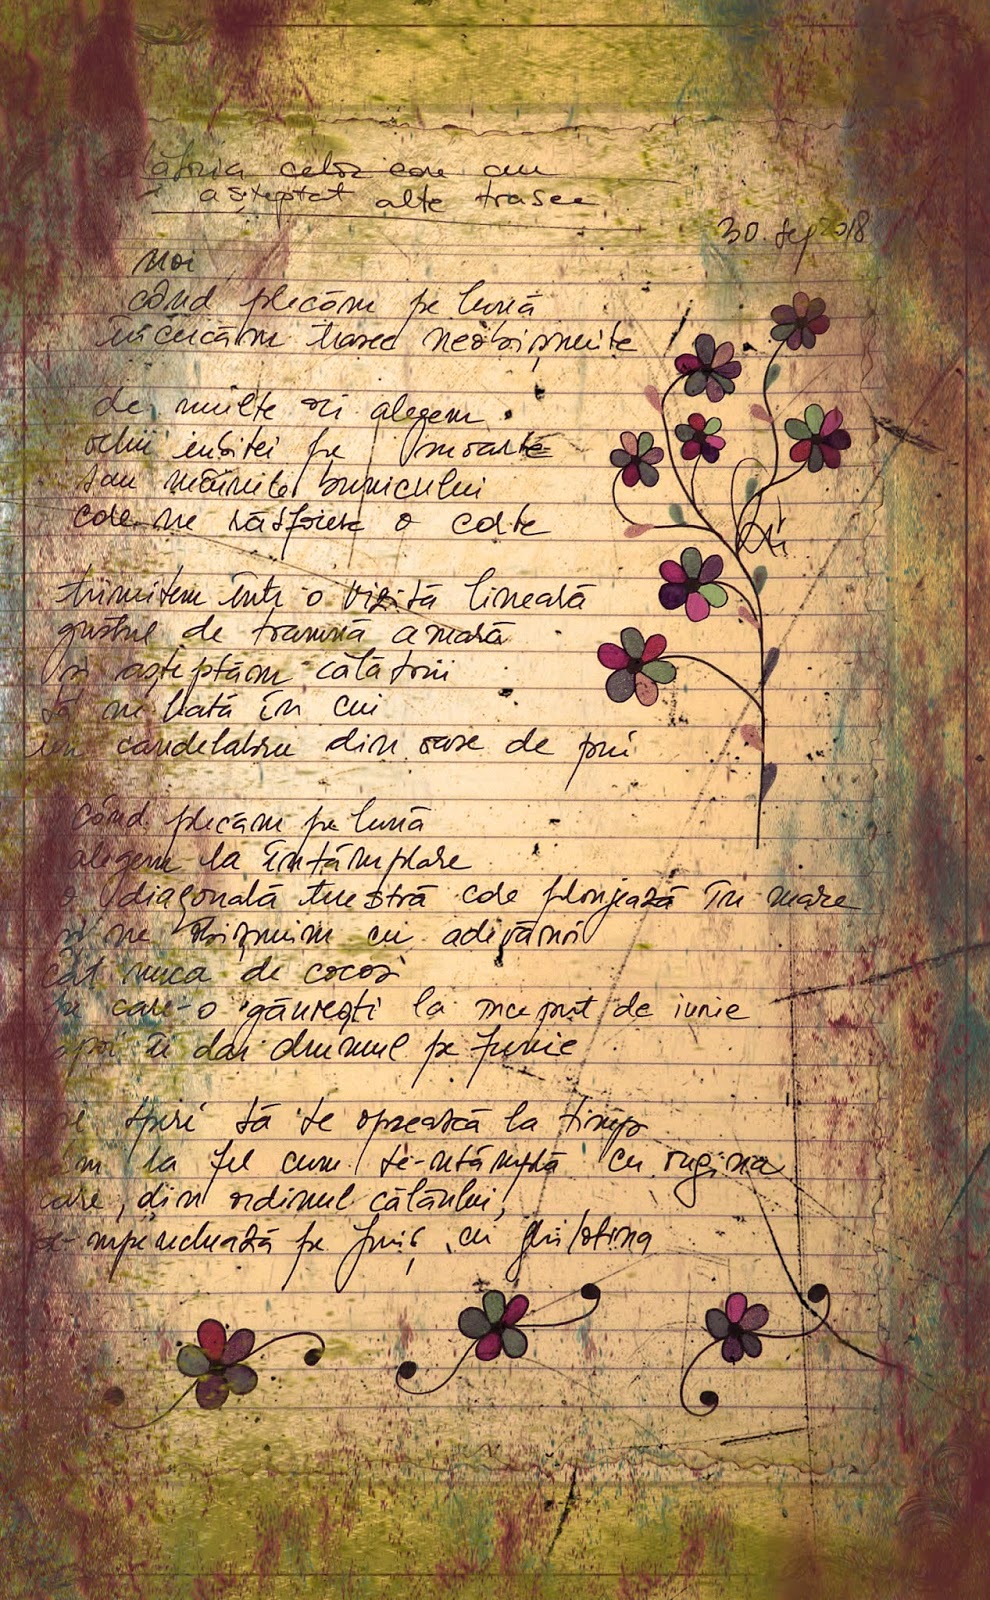 călătoria celor care au
așteptat alte trasee
30. sep 2018
Noi
când plecăm pe lună
încercăm trasee neobișnuite
de multe ori alegem
ochii iubitei pe moarte
sau mâinile bunicului
care ne răsfoiesc o carte
trimitem într-o vizită lineală
gustul de toamnă amară
și așteptăm călătorii
să ne bată în cui
un candelabru din oase de pui
când plecăm pe lună
alegem la întâmplare
o diagonală terestră care plonjează în mare
și ne obișnuim cu adevărul
cât nuca de cocos
pe care-o găurești la început de iunie
apoi îi dai drumul pe funie
și speri să te oprească la timp
la fel cum se-ntâmplă cu rugina
care, din ordinul călăului,
se-mperechează pe furiș cu ghilotina